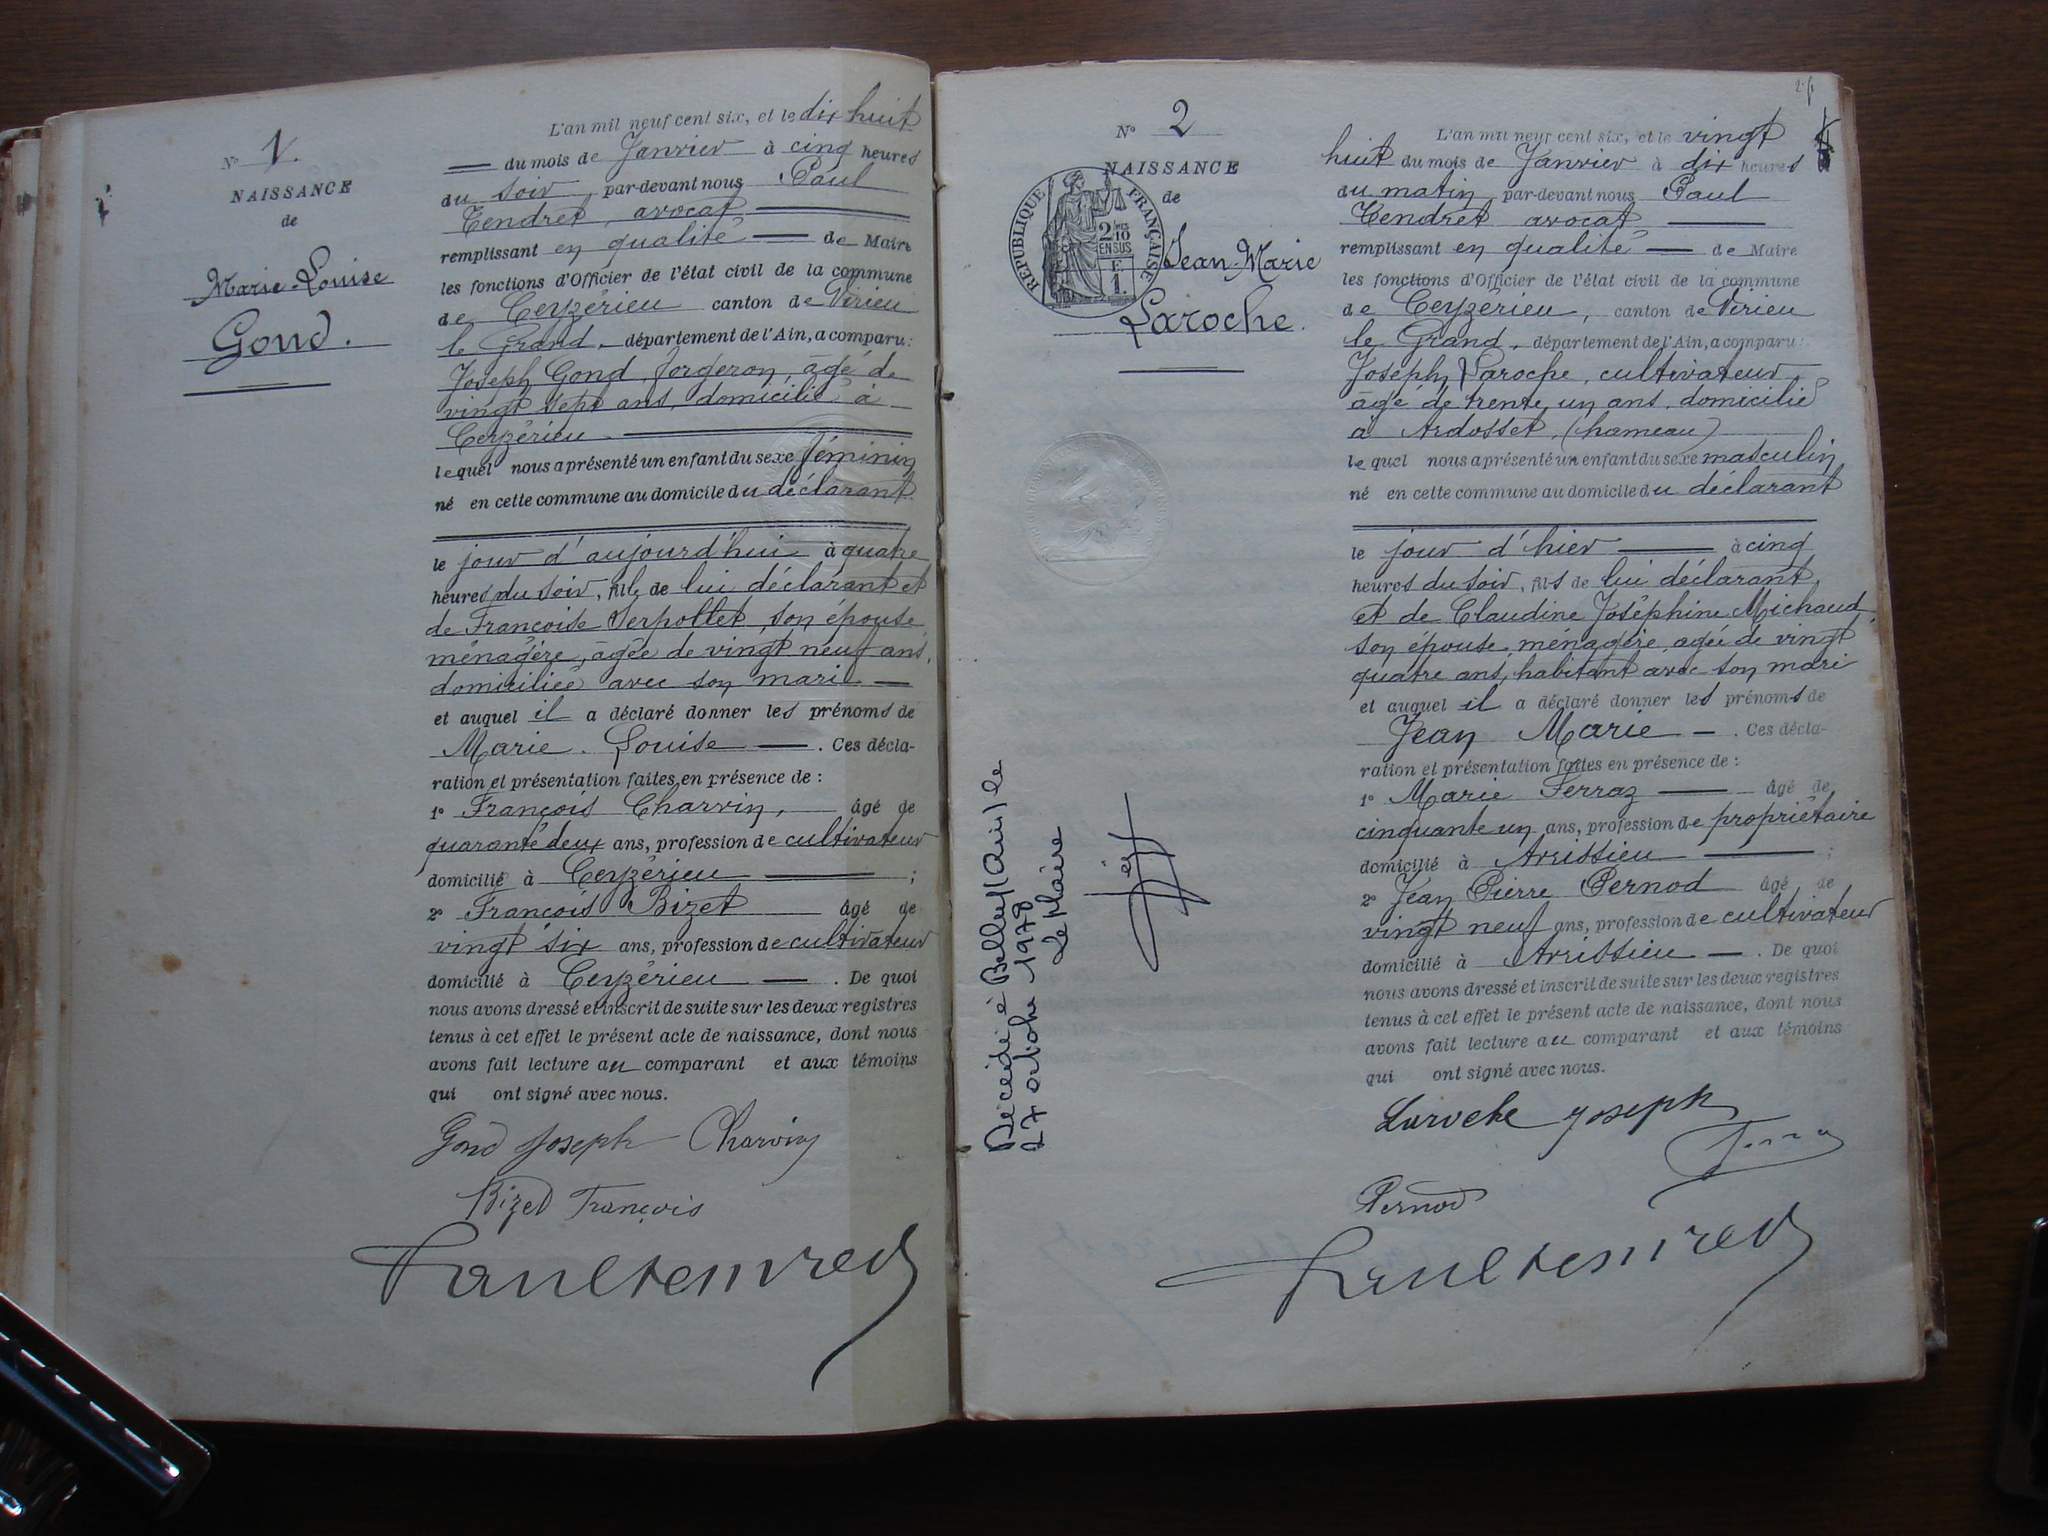 N° 1.
NAISSANCE
de
Marie-Louise
Gond.
L'an mil neuf cent six, et le dix huit
du mois de Janvier à cinq heures
du soir, par-devant nous Paul
Tendret, avocat
remplissant en qualité de Maire
les fonctions d'Officier de l'état civil de la commune
de Ceyzérieu canton de Virieu
le Grand, département de l'Ain, a comparu:
Joseph Gond, forgeron, âgé de
vingt sept ans, domicilié à
Ceyzérieu
lequel nous a présenté un enfant du sexe féminin
né en cette commune au domicile du déclarant
le jour d'aujourd'hui à quatre
heures du soir, fille de lui déclarant et
de Françoise Serpollet, son épouse
ménagère, âgée de vingt neuf ans,
domiciliée avec son mari
et auquel il a déclaré donner les prénoms de
Marie. Louise. Ces décla-
ration et présentation faites en présence de :
1° François Charvin, âgé de
quarante deux ans, profession de cultivateur
domicilié à Ceyzérieu ;
2° François Bizet âgé de
vingt six ans, profession de cultivateur
domicilié à Ceyzérieu. De quoi
nous avons dressé et inscrit de suite sur les deux registres
tenus à cet effet le présent acte de naissance, dont nous
avons fait lecture au comparant et aux témoins
qui ont signé avec nous.
Gond Joseph Charvin
Bizet François
Paul Tendret
N° 2
NAISSANCE
de
RÉPUBLIQUE FRANÇAISE
2/10
EN SUS
E
1.
Jean-Marie
Laroche.
Décédé à Belley (Ain) le
27 octobre 1978
Le Maire
L'an mil neuf cent six, et le vingt
huit du mois de Janvier à dix heures
du matin, par-devant nous Paul
Tendret avocat
remplissant en qualité de Maire
les fonctions d'Officier de l'état civil de la commune
de Ceyzerieu, canton de Virieu
le Grand, département de l'Ain, a comparu:
Joseph Laroche, cultivateur,
âgé de trente un ans, domicilié
à Ardosset, (hameau)
lequel nous a présenté un enfant du sexe masculin
né en cette commune au domicile du déclarant
le jour d'hier à cinq
heures du soir, fils de lui déclarant,
et de Claudine Joséphine Michaud
son épouse, ménagère, agée de vingt
quatre ans, habitant avec son mari
et auquel il a déclaré donner les prénoms de
Jean Marie. Ces décla-
ration et présentation faites en présence de :
1° Marie Ferraz âgé de
cinquante un ans, profession de propriétaire
domicilié à Avrissieu ;
2° Jean Pierre Pernod âgé de
vingt neuf ans, profession de cultivateur
domicilié à Avrissieu. De quoi
nous avons dressé et inscrit de suite sur les deux registres
tenus à cet effet le présent acte de naissance, dont nous
avons fait lecture au comparant et aux témoins
qui ont signé avec nous.
Laroche Joseph
Pernod
Paul Tendret